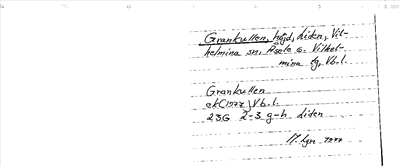 Grankullen, höjd, liden, Vil-
helmina sn, Åsele o. Vilhel-
mina tg, Vb.l.
Grankullen
ek(1977) Vb.l.
23G 2-3 g-h liden
1977